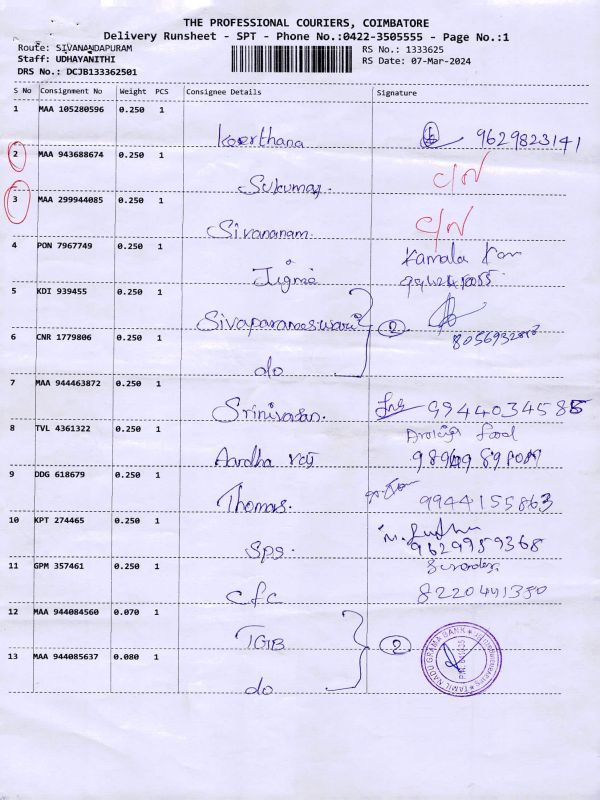 THE PROFESSIONAL COURIERS, COIMBATORE
Delivery Runsheet - SPT - Phone No.:0422-3505555 - Page No.:1
Route: SIVANANDAPURAM RS No.: 1333625
Staff: UDHAYANITHI RS Date: 07-Mar-2024
DRS No.: DCJB133362501
S No Consignment No Weight PCS Consignee Details Signature
1 MAA 105280596 0.250 1
Keerthana 9629823141
2 MAA 943688674 0.250 1
Sukumar. C/N
3 MAA 299944085 0.250 1
Sivananam. C/N
4 PON 7967749 0.250 1 Kamala
Jigme
5 KDI 939455 0.250 1
Sivaparameswari 2
6 CNR 1779806 0.250 1
do
7 MAA 944463872 0.250 1
Srinivasan. 9944034585
8 TVL 4361322 0.250 1
Aardha
9 DDG 618679 0.250 1
Thomas. 9944155863
10 KPT 274465 0.250 1
Sps. 9629959368
11 GPM 357461 0.250 1
cfc 8220441350
12 MAA 944084560 0.070 1
TGB 2
13 MAA 944085637 0.080 1
do
TAMIL NADU GRAMA BANK